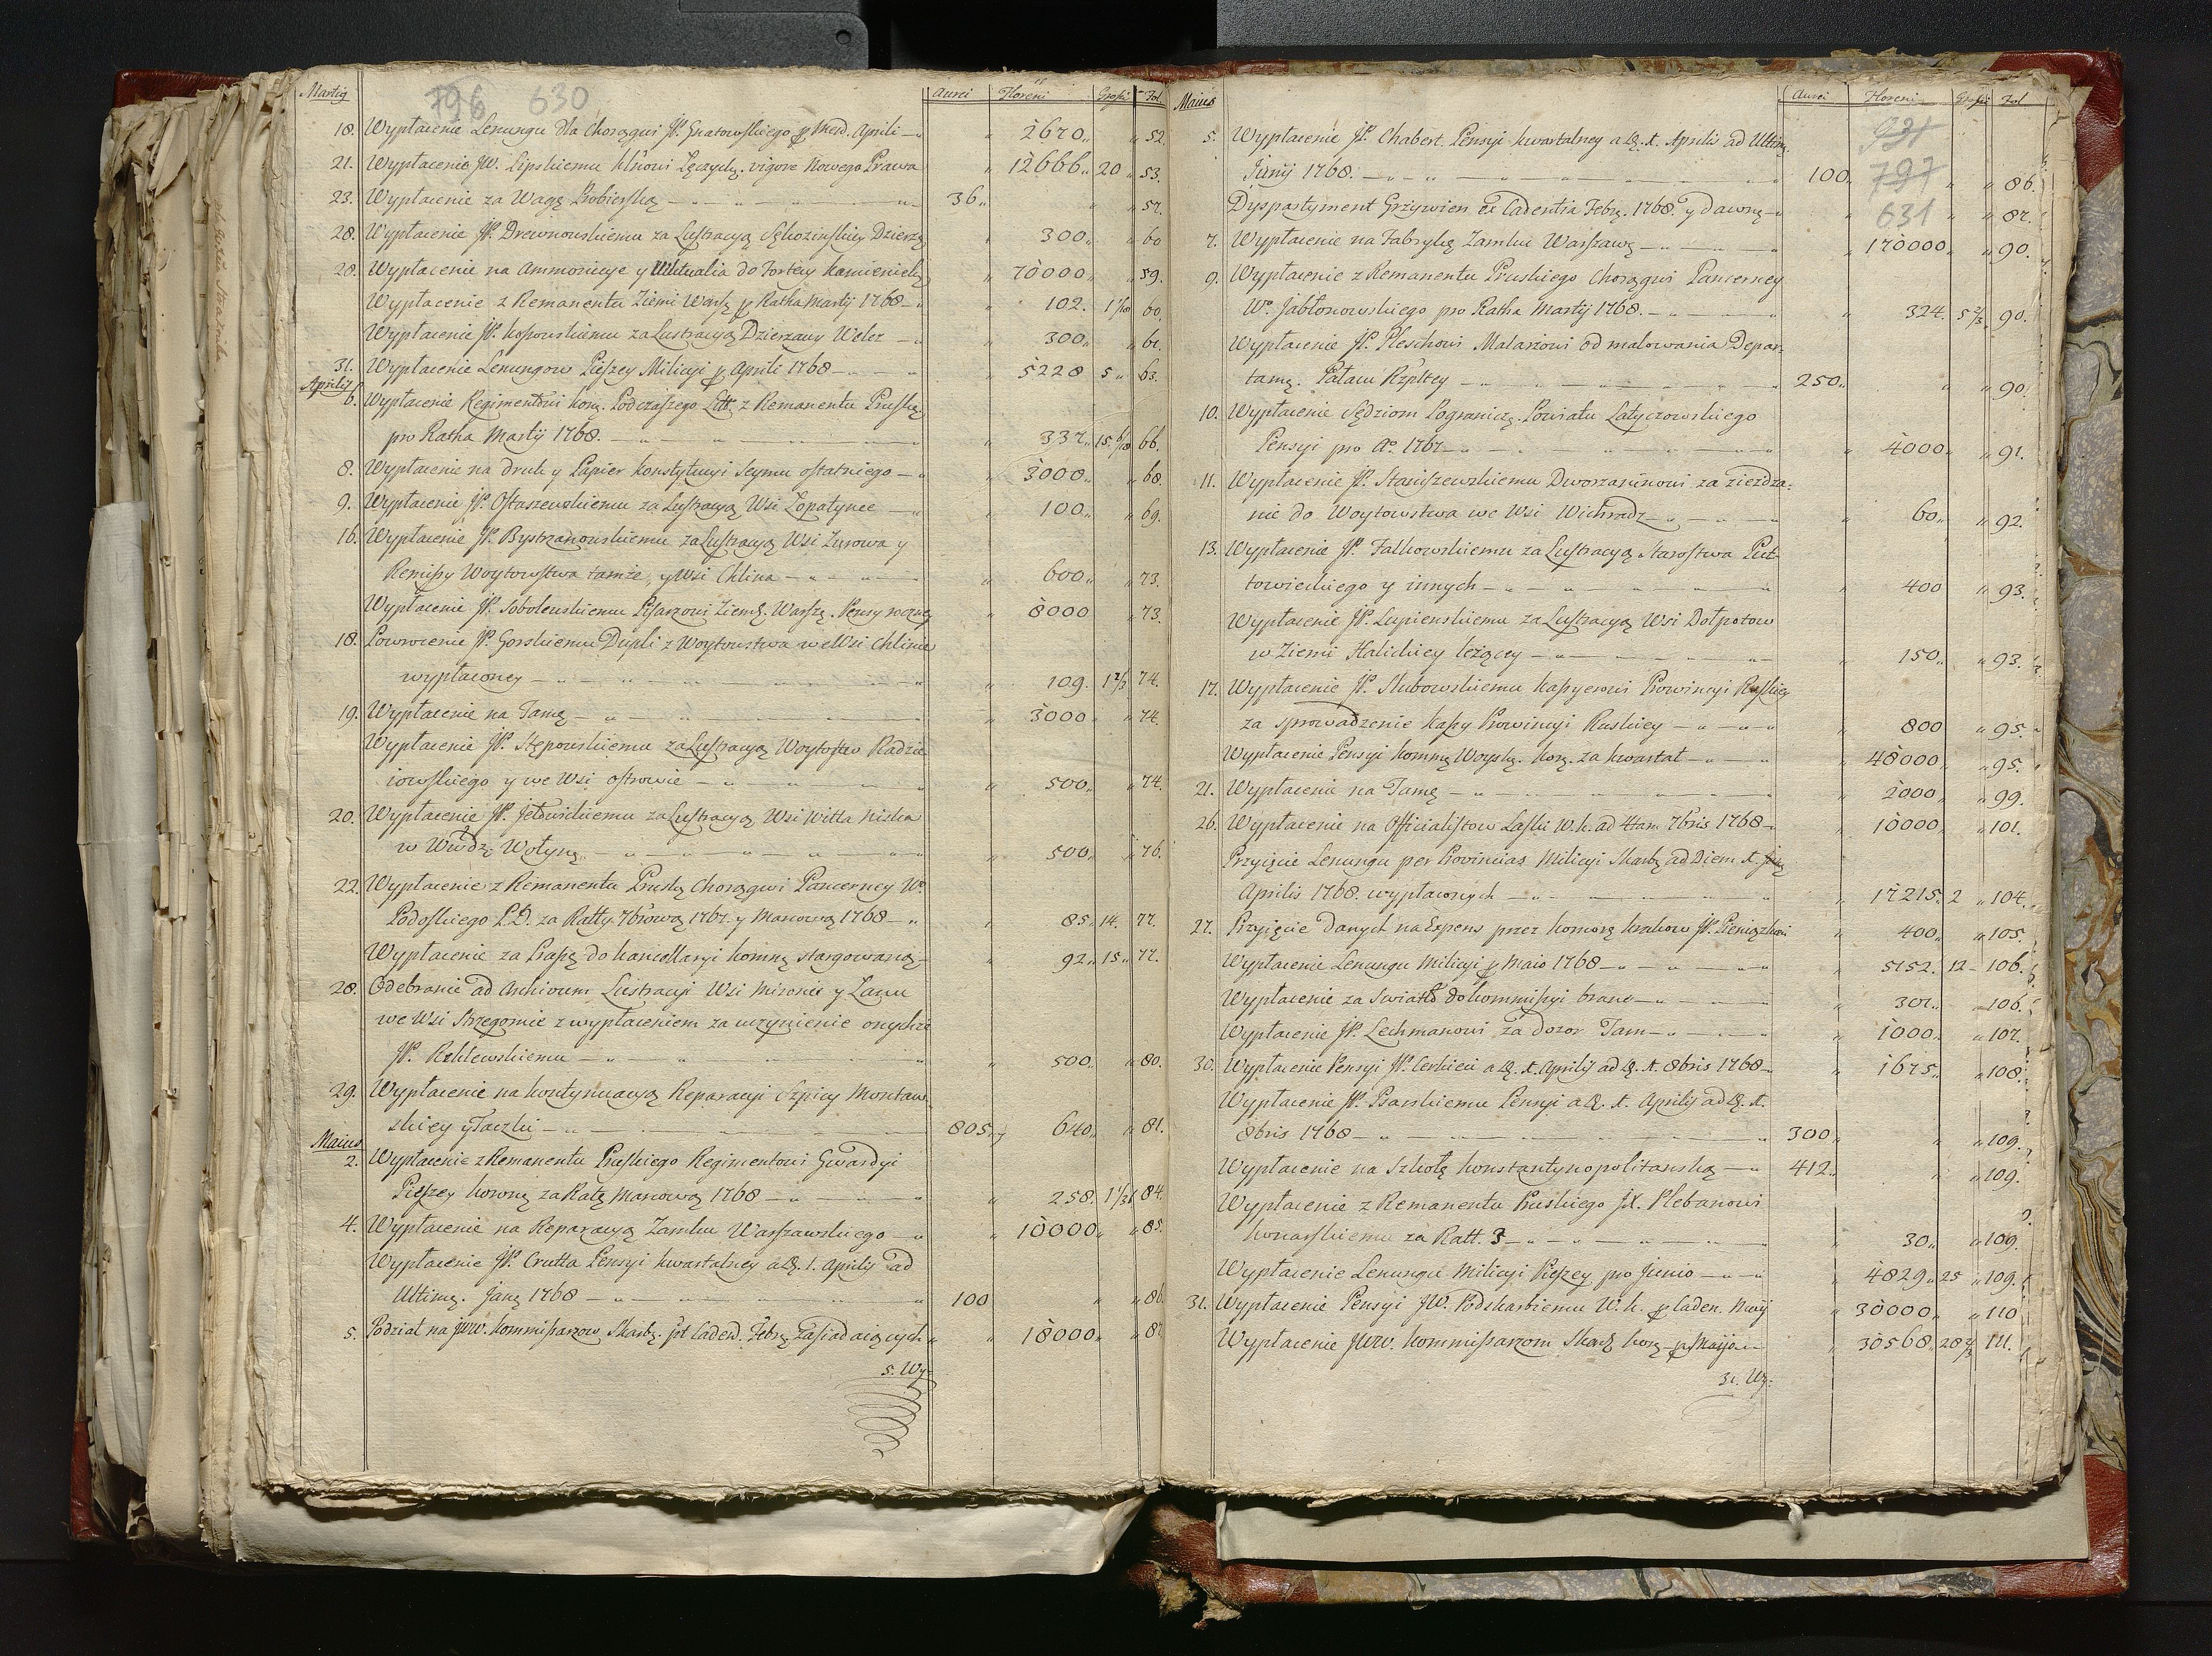 796 630
Martij Aurei Floreni Grossi Fol
18. Wypłacenie Lenungu dla Chorągwi JP. Gnatowskiego p Mens. Aprili 2670 52.
21. Wypłacenie JW. Lipskiemu Łęczyck. vigore Nowego Prawa 12666 20 53.
23. Wypłacenie za Wagę Probierską 36 57.
28. Wypłacenie JP. Drewnowskiemu za Lustracyą Dzierz. 300 60
28. Wypłacenie na Ammonicye y Wiktualia do Fortecy Kamienieck. 70000 59.
Wypłacenie z Remanentu Ziemi Warsz. p Ratha Martij 1768 102. 60.
Wypłacenie JP. Kossowskiemu za Lustracyą Dzierzawy 300 61.
31. Wypłacenie Lenungow Pieszey Milicyi p Aprili 1768 5228 5 63.
Aprilis
6. Wypłacenie Regimentowi Kon. Podczaszego Litt. z Remanentu Prusk.
pro Ratha Martij 1768. 337 15 66.
8. Wypłacenie na druk y Papier Konstytucyi Seymu ostatniego 3000 68.
9. Wypłacenie JP. Ostaszewskiemu za Lustracyą Wsi Łopatynce 100 69.
16. Wypłacenie JP. Bystrzanowskiemu za Lustracyą Wsi Zurowa y
Remissy Woytowstwa tamże, y Wsi Chlina 600 73.
Wypłacenie JP. Sobolewskiemu Pisarzowi Ziemsk. Warsz. Pensy roczney 8000 73.
18. Powrocenie JP. Gorskiemu Dupli z Woytowstwa we Wsi Chlinie
wypłaconey 109. 1 2/3 74.
19. Wypłacenie na Tamę 3000 74.
Wypłacenie JP. Stępowskiemu za Lustracyą Woytostw Radzie
iowskiego y we Wsi Ostrowie 500 74.
20. Wypłacenie JP. Jełowickiemu za Lustracyą Wsi Witka Niska
w Wwdz. Wołyn. 500 76.
22. Wypłacenie z Remanentu Prusk. Chorągwi Pancerney W.
Podoskiego P.D. za Ratty 7browa 1767. y Marcową 1768 85 14. 77.
Wypłacenie za Prasę do Kancellaryi Komn. stargowaną 92 15 77.
28. Odebranie ad Archivum Lustracyi Wsi Mironic y Łanu
we Wsi Strzegomie z wypłaceniem za uczynienie onychże
JP. 500 80.
29. Wypłacenie na kontynuacyą Reparacyi Szpicy Montaw
skiey y Taczki 805 7 640 81.
Maius
2. Wypłacenie z Remanentu Pruskiego Regimentowi Gwardyi
Pieszey Koronn. za Ratę Marcową 1768 258. 84.
4. Wypłacenie na Reparacyą Zamku Warszawskiego 10000 85.
Wypłacenie JP. Crutta Pensyi kwartalney a D. 1. Aprilis ad
Ultim. 1768 100 86.
5. Podział na JWW. Kommissarzow Skarb. Caden. Febr. zasiadaiących 18000 87
5. Wy-
Maius Aurei Floreni Grossi Fol
931
797
631
5. Wypłacenie JP. Chabert. Pensyi kwartalney a D. 1. Aprilis ad Ultim.
Junij 1768. 100 86.
Dyspartyment Grzywien ex Cadentia Febr. 1768. y dawn. 87.
7. Wypłacenie na Fabrykę Zamku Warszaw. 170000 90.
9. Wypłacenie z Remanentu Pruskiego Chorągwi Pancerney
W. Jabłonowskiego pro Ratha Martij 1768. 324. 5 2/3 90.
Wypłacenie JP. Pleschowi Malarzowi od malowania Depar-
tam. Pałacu Rzpltey 250 90.
10. Wypłacenie Sędziom Pogranicz. Powiatu Latyczowskiego
Pensyi pro Ao 1767 4000 91.
11. Wypłacenie JP. Staniszewskiemu Dworzaninowi za ziezdza-
nie do Woytowstwa we Wsi Wichradz 60 92.
13. Wypłacenie JP. Falkowskiemu za Lustracyą Starostwa
towieckiego y innych 400 93.
Wypłacenie JP. Lupienskiemu za Lustracyą Wsi Dołpotow
w Ziemi Halickiey leżącey 150 93.
17. Wypłacenie JP. Słubowskiemu Kassyerowi Prowincyi Ruskiey
za sprowadzenie Kassy Prowincyi Ruskiey 800 95.
Wypłacenie Pensyi Komn. Woysk. Kor. za kwartał 48000 95.
21. Wypłacenie na Tamę 2000 99.
26. Wypłacenie na Officialistow Laski W. K. ad 7bris 1768 10000 101.
Przyięcie Lenungu per Provincias Milicyi Skarb. ad Diem 1.
Aprilis 1768. wypłaconych 17215 2 104.
27. Przyięcie Danych na Expens przez Komorę Krakow. JP. Pieniążkowi 400 105.
Wypłacenie Lenungu Milicyi p Maio 1768 5152. 12 106.
Wypłacenie za Swiatło do Kommissyi brane 307 106.
Wypłacenie JP. Lechmanowi za dozor Tam 1000 107.
30. Wypłacenie Pensyi JP. a D. 1. Aprilis ad D. 1. 8bris 1768 1675 108.
Wypłacenie JP. Psarskiemu Pensyi a D. 1. Aprilis ad D. 1.
8bris 1768 300 109.
Wypłacenie na Szkołę Konstantynopolitanską 412 109.
Wypłacenie z Remanentu Pruskiego JX. Plebanowi
Konarskiemu za Ratt. 3 30 109.
Wypłacenie Lenungu Milicyi Pieszey pro Junio 4829 25 109.
31. Wypłacenie Pensyi JW. Podskarbiemu W. K. p Caden. Maij 30000 110
Wypłacenie JWW. Kommissarzom Skarb. Kor. p Maij 30568 28 2/3 111.
31. Wy: